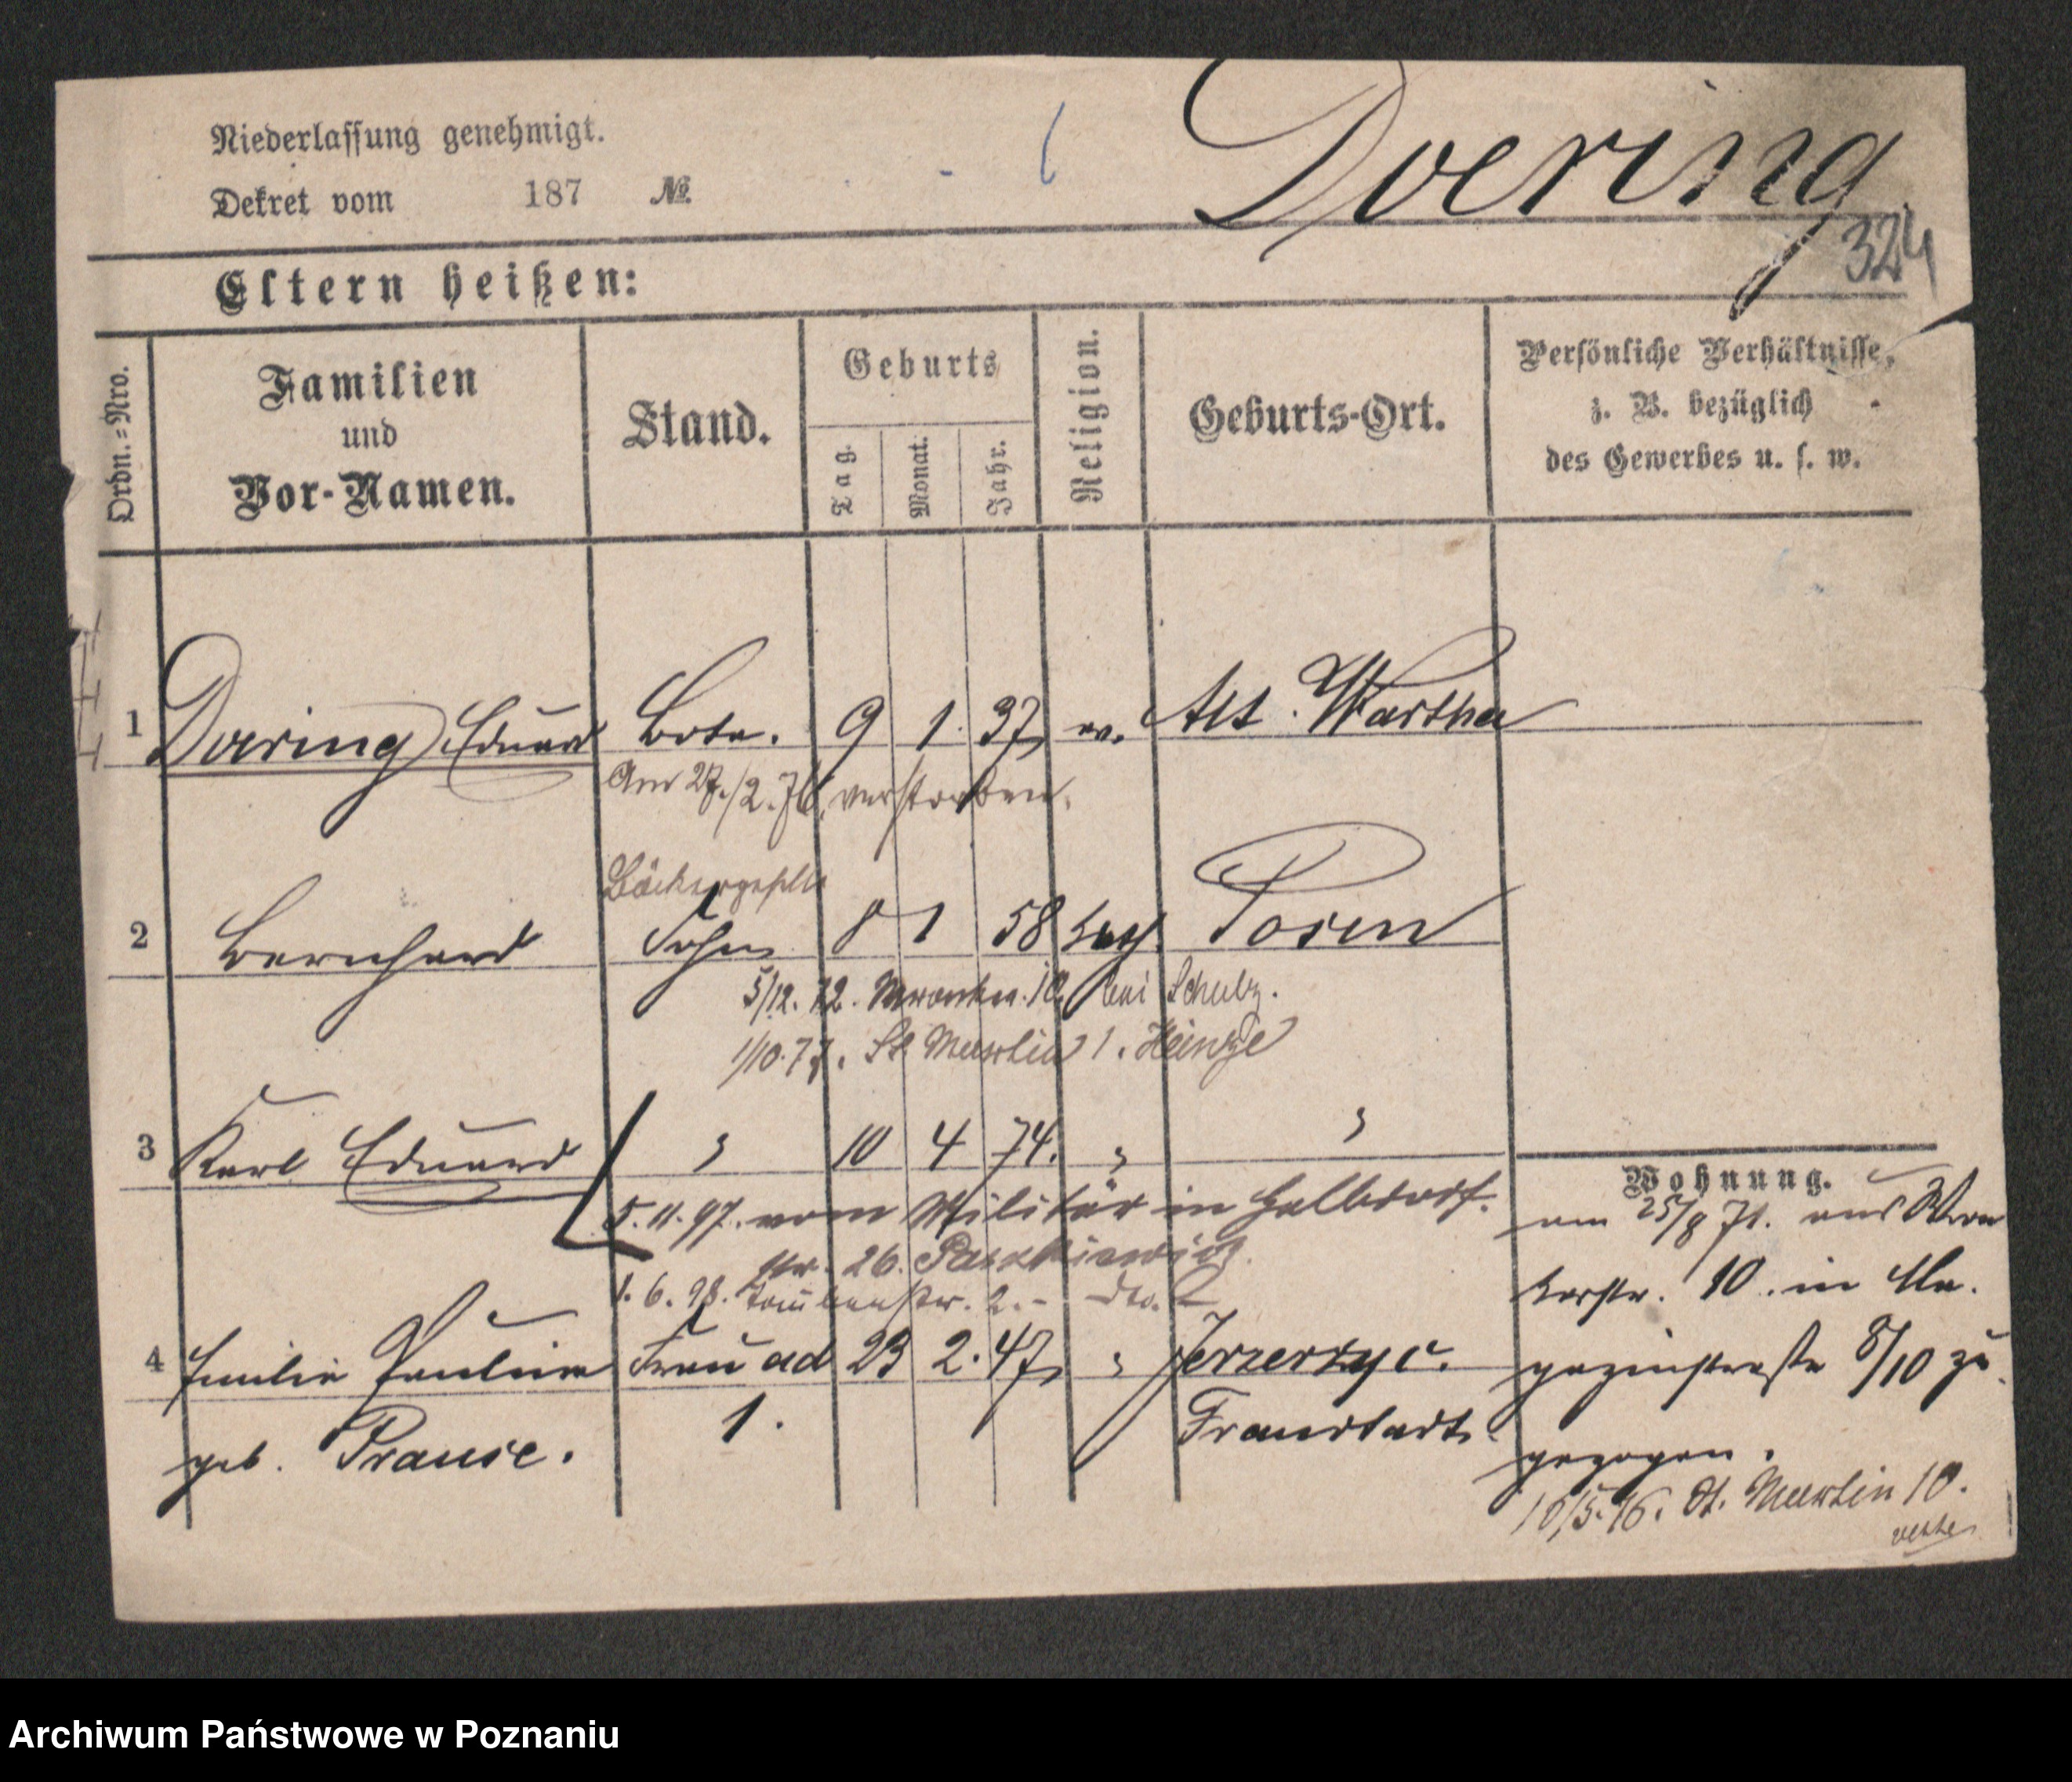 Niederlassung genehmigt.
Doering
Dekret vom 187 №
324
Eltern heißen:
Ordn.=Nro.
Familien
und
Vor-Namen.
Stand.
Geburts
Tag.
Monat.
Jahr.
Religion.
Geburts-Ort.
Persönliche Verhältnisse,
z. B. bezüglich
des Gewerbes u. s. w.
1 Doering Eduard Bote. 9 1. 37 ev. Alt. Warthe
Am 27./2. 76. verstorben.
Bäckergeselle
2 Bernhard Sohn 8 1 58 kath. Posen
5/12. 72. Wronker. 10. bei Schulz.
1/10. 77. St Martin 1. Heinze
3 Karl Eduard " 10 4 74. " "
5. 11. 97. vom Militär in Halbdorf-
str. 26.
1. 6. 98. Taubenstr. 2. - dto.
4 Emilie Pauline Frau ad 23 2. 47 "
geb. Prause. 1. Fraustadt
Wohnung.
am 25/9 71. aus Wron
kerstr. 10. in Ma.
gazinstraße 8/10 zu
gezogen.
10/5. 76. St. Martin 10.
Archiwum Państwowe w Poznaniu